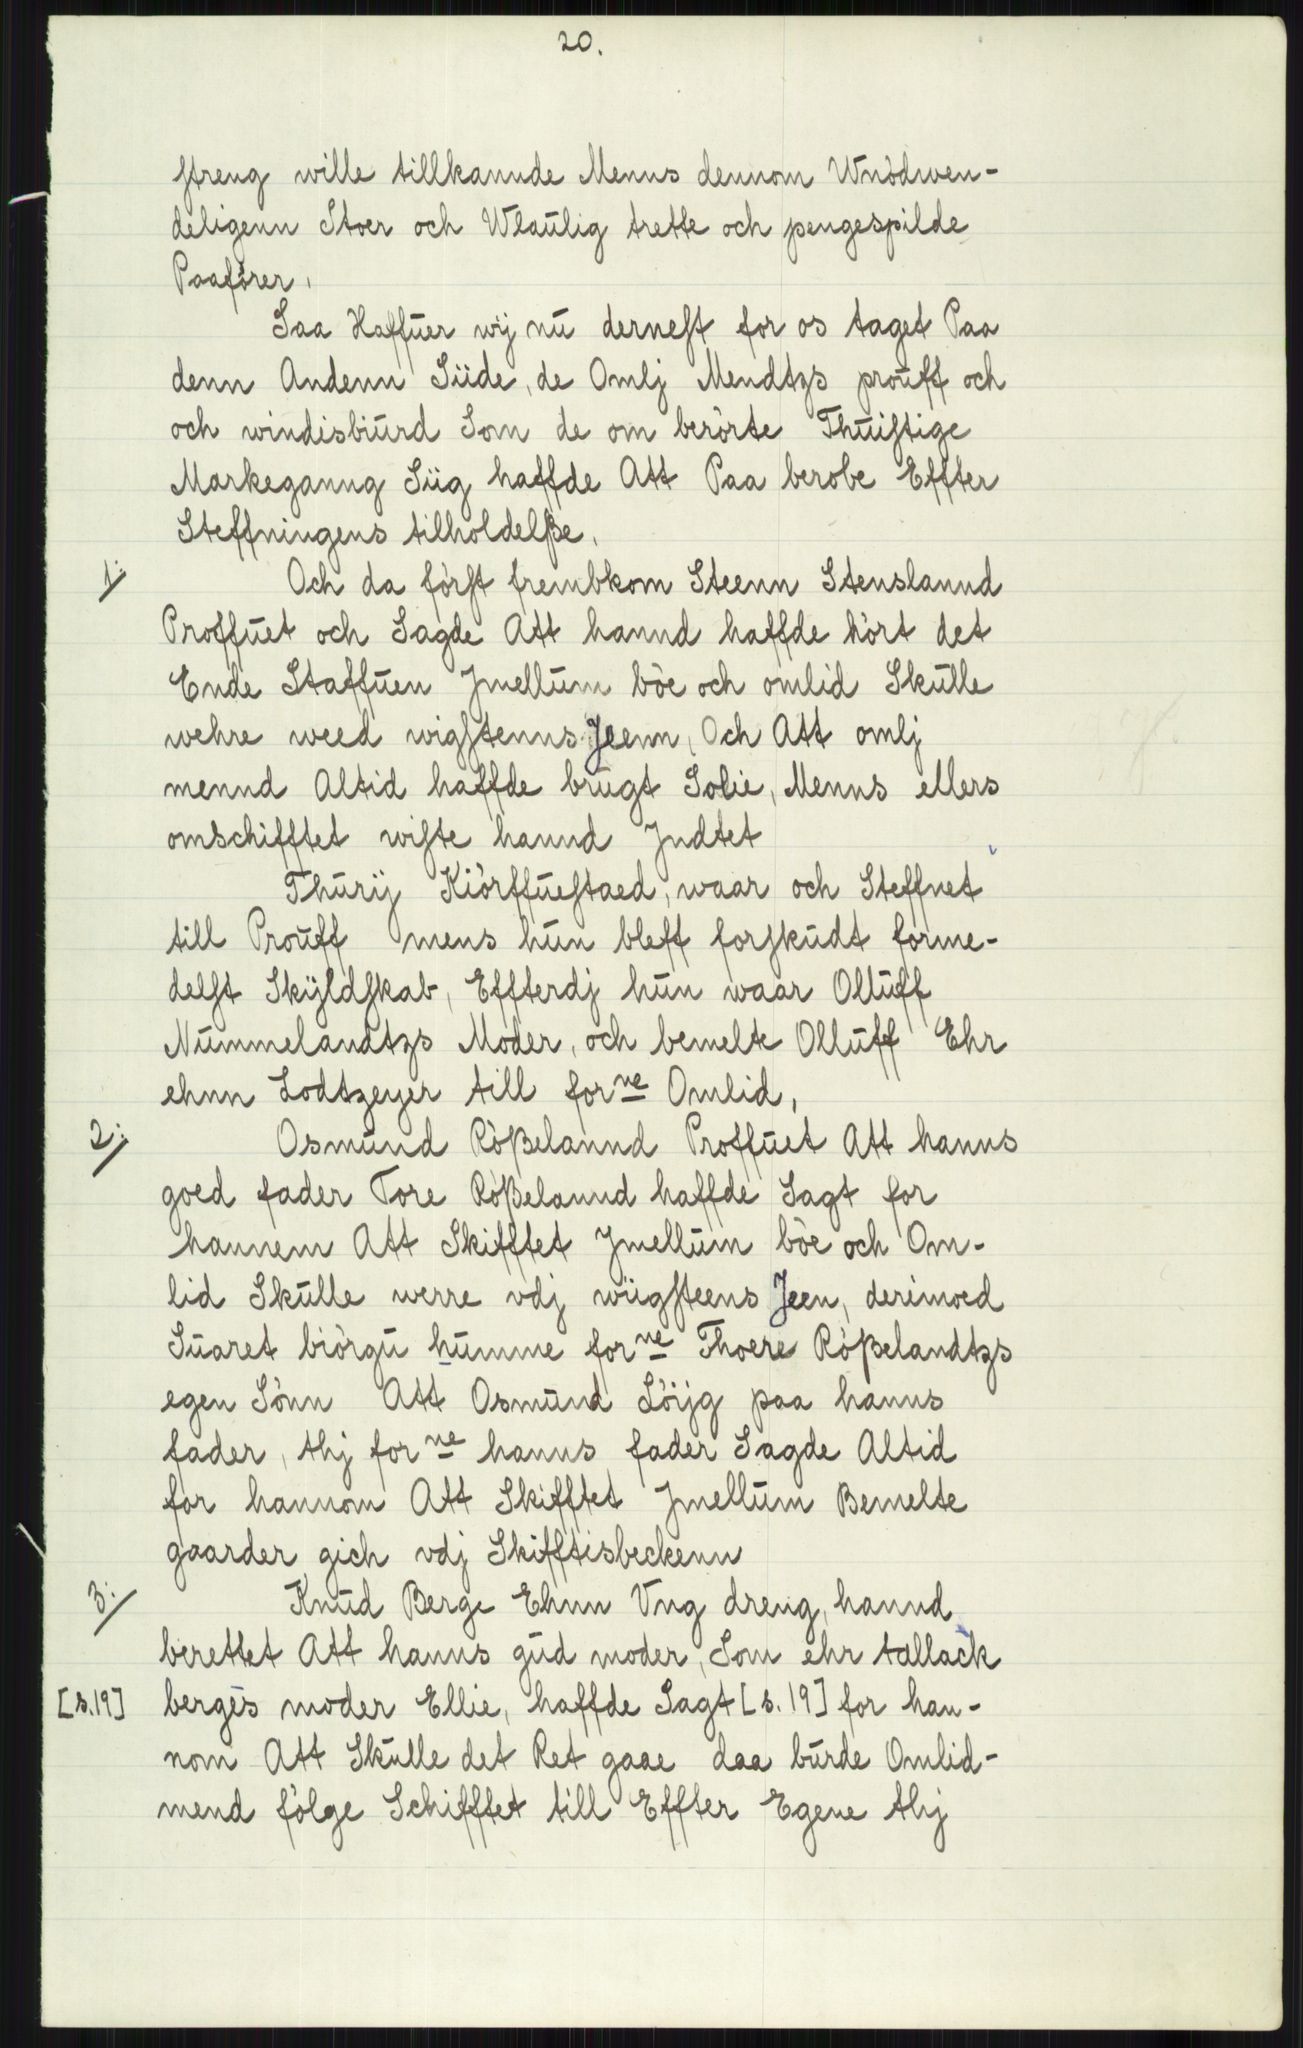 20.
streng wille tillkannde Menns dennom Wnödwen-
deligenn Stoer och Wlaulig trette och pengespilde
Paaförer,
Saa Haffuer wij nu dernest for os taget Paa
denn Andenn Siide, de Omlj Mendtzs prouff och
och windisbiurd Som de om berörte Thuistige
Markeganng Siig haffde Att Paa berobe Effter
Steffningens tilholdelße,
1: Och da först frembkom Steenn Stenslannd
Proffuet och Sagde Att hannd haffde hört det
Ende Staffuen Jmellum böe och omlid Skulle
wehre weed wigstenns Jeenn, Och Att omlj
mennd Altid haffde brugt Solie, Menns ellers
omschifftet wiste hannd Jndtet
Thurij Kiörffuestaed, waar och Steffnet
till Prouff mens hun bleff forskudt forme-
delst Skÿldskab, Effterdj hun waar Olluff
Nummelandtzs Moder, och bemelte Olluff Ehr
ehnn Lodtzeyer till forne Omlid,
2: Osmund Rößelannd Proffuet Att hanns
goed fader Tore Rößelannd haffde Sagt for
hannem Att Skifftet Jmellum böe och Om-
lid Skulle werre vdj wiigsteens Jeen, derimoed
Suaret biörgu humme forne Thoere Rößelandtzs
egen Sönn Att Osmund Löijg paa hanns
fader, thj forne hanns fader Sagde Altid
for hannom Att Skifftet Jmellum Bemelte
gaarder gich vdj Skifftisbeckenn
3: Knud Berge Ehnn Vng dreng, hannd
berettet Att hanns gud moder, Som ehr tallack
[s.19] berges moder Ellie, haffde Sagt [s. 19] for han-
nom Att Skulle det Ret gaae daa burde Omlid-
mend fölge Schifftet till Effter Egene thj